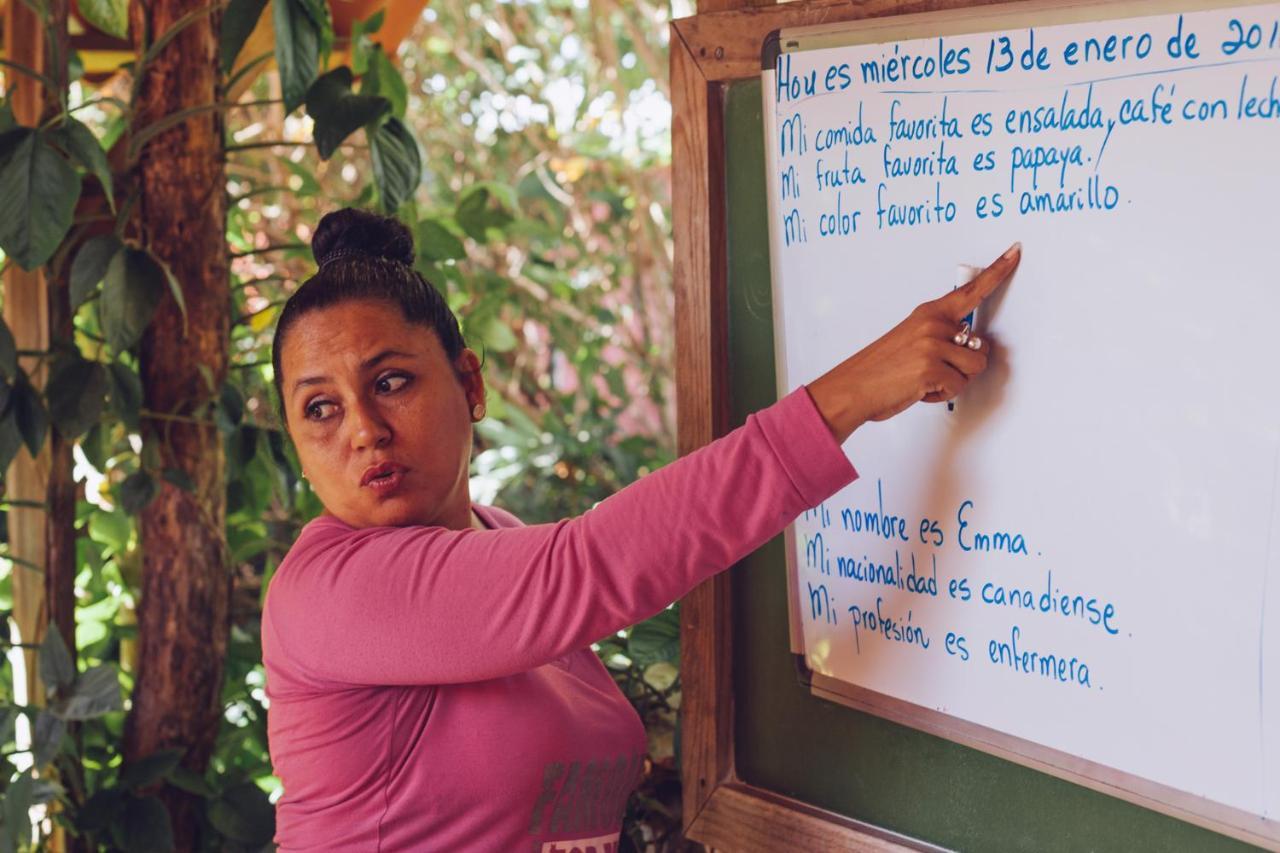 Hoy es miércoles 13 de enero de 201
Mi comida favorita es ensalada, café con lech
Mi fruta favorita es papaya.
Mi color favorito es amarillo.
Mi nombre es Emma.
Mi nacionalidad es canadiense.
Mi profesión es enfermera.